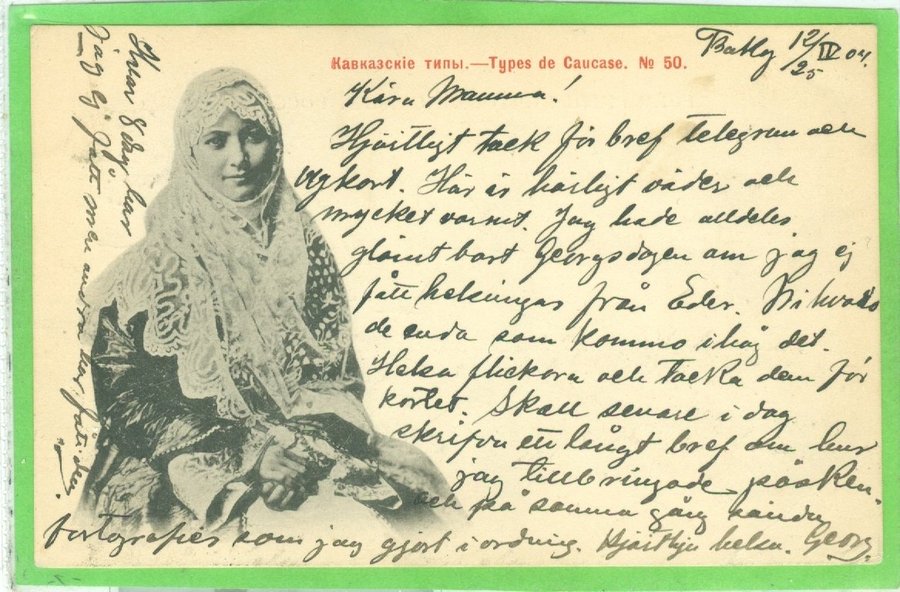 Кавказскіе типы.—Types de Caucase. № 50.
Baku 12/25 IV 04.
Kära Mamma!
Hjärtligt tack för bref telegram och
vykort. Här är härligt väder och
mycket varmt. Jag hade alldeles
glömt bort Georgsdagen om jag ej
fått helsingar från Eder. Ni
de enda som kommo ihåg det.
Helsa flickorna och tacka dem för
kortet. Skall senare i dag
skrifva ett långt bref om hur
jag tillbringade påsken
och på samma gång sända
fortografier som jag gjort i ordning. Hjärtliga helsn. Georg.
har
Jag ej fått men andra har fått.